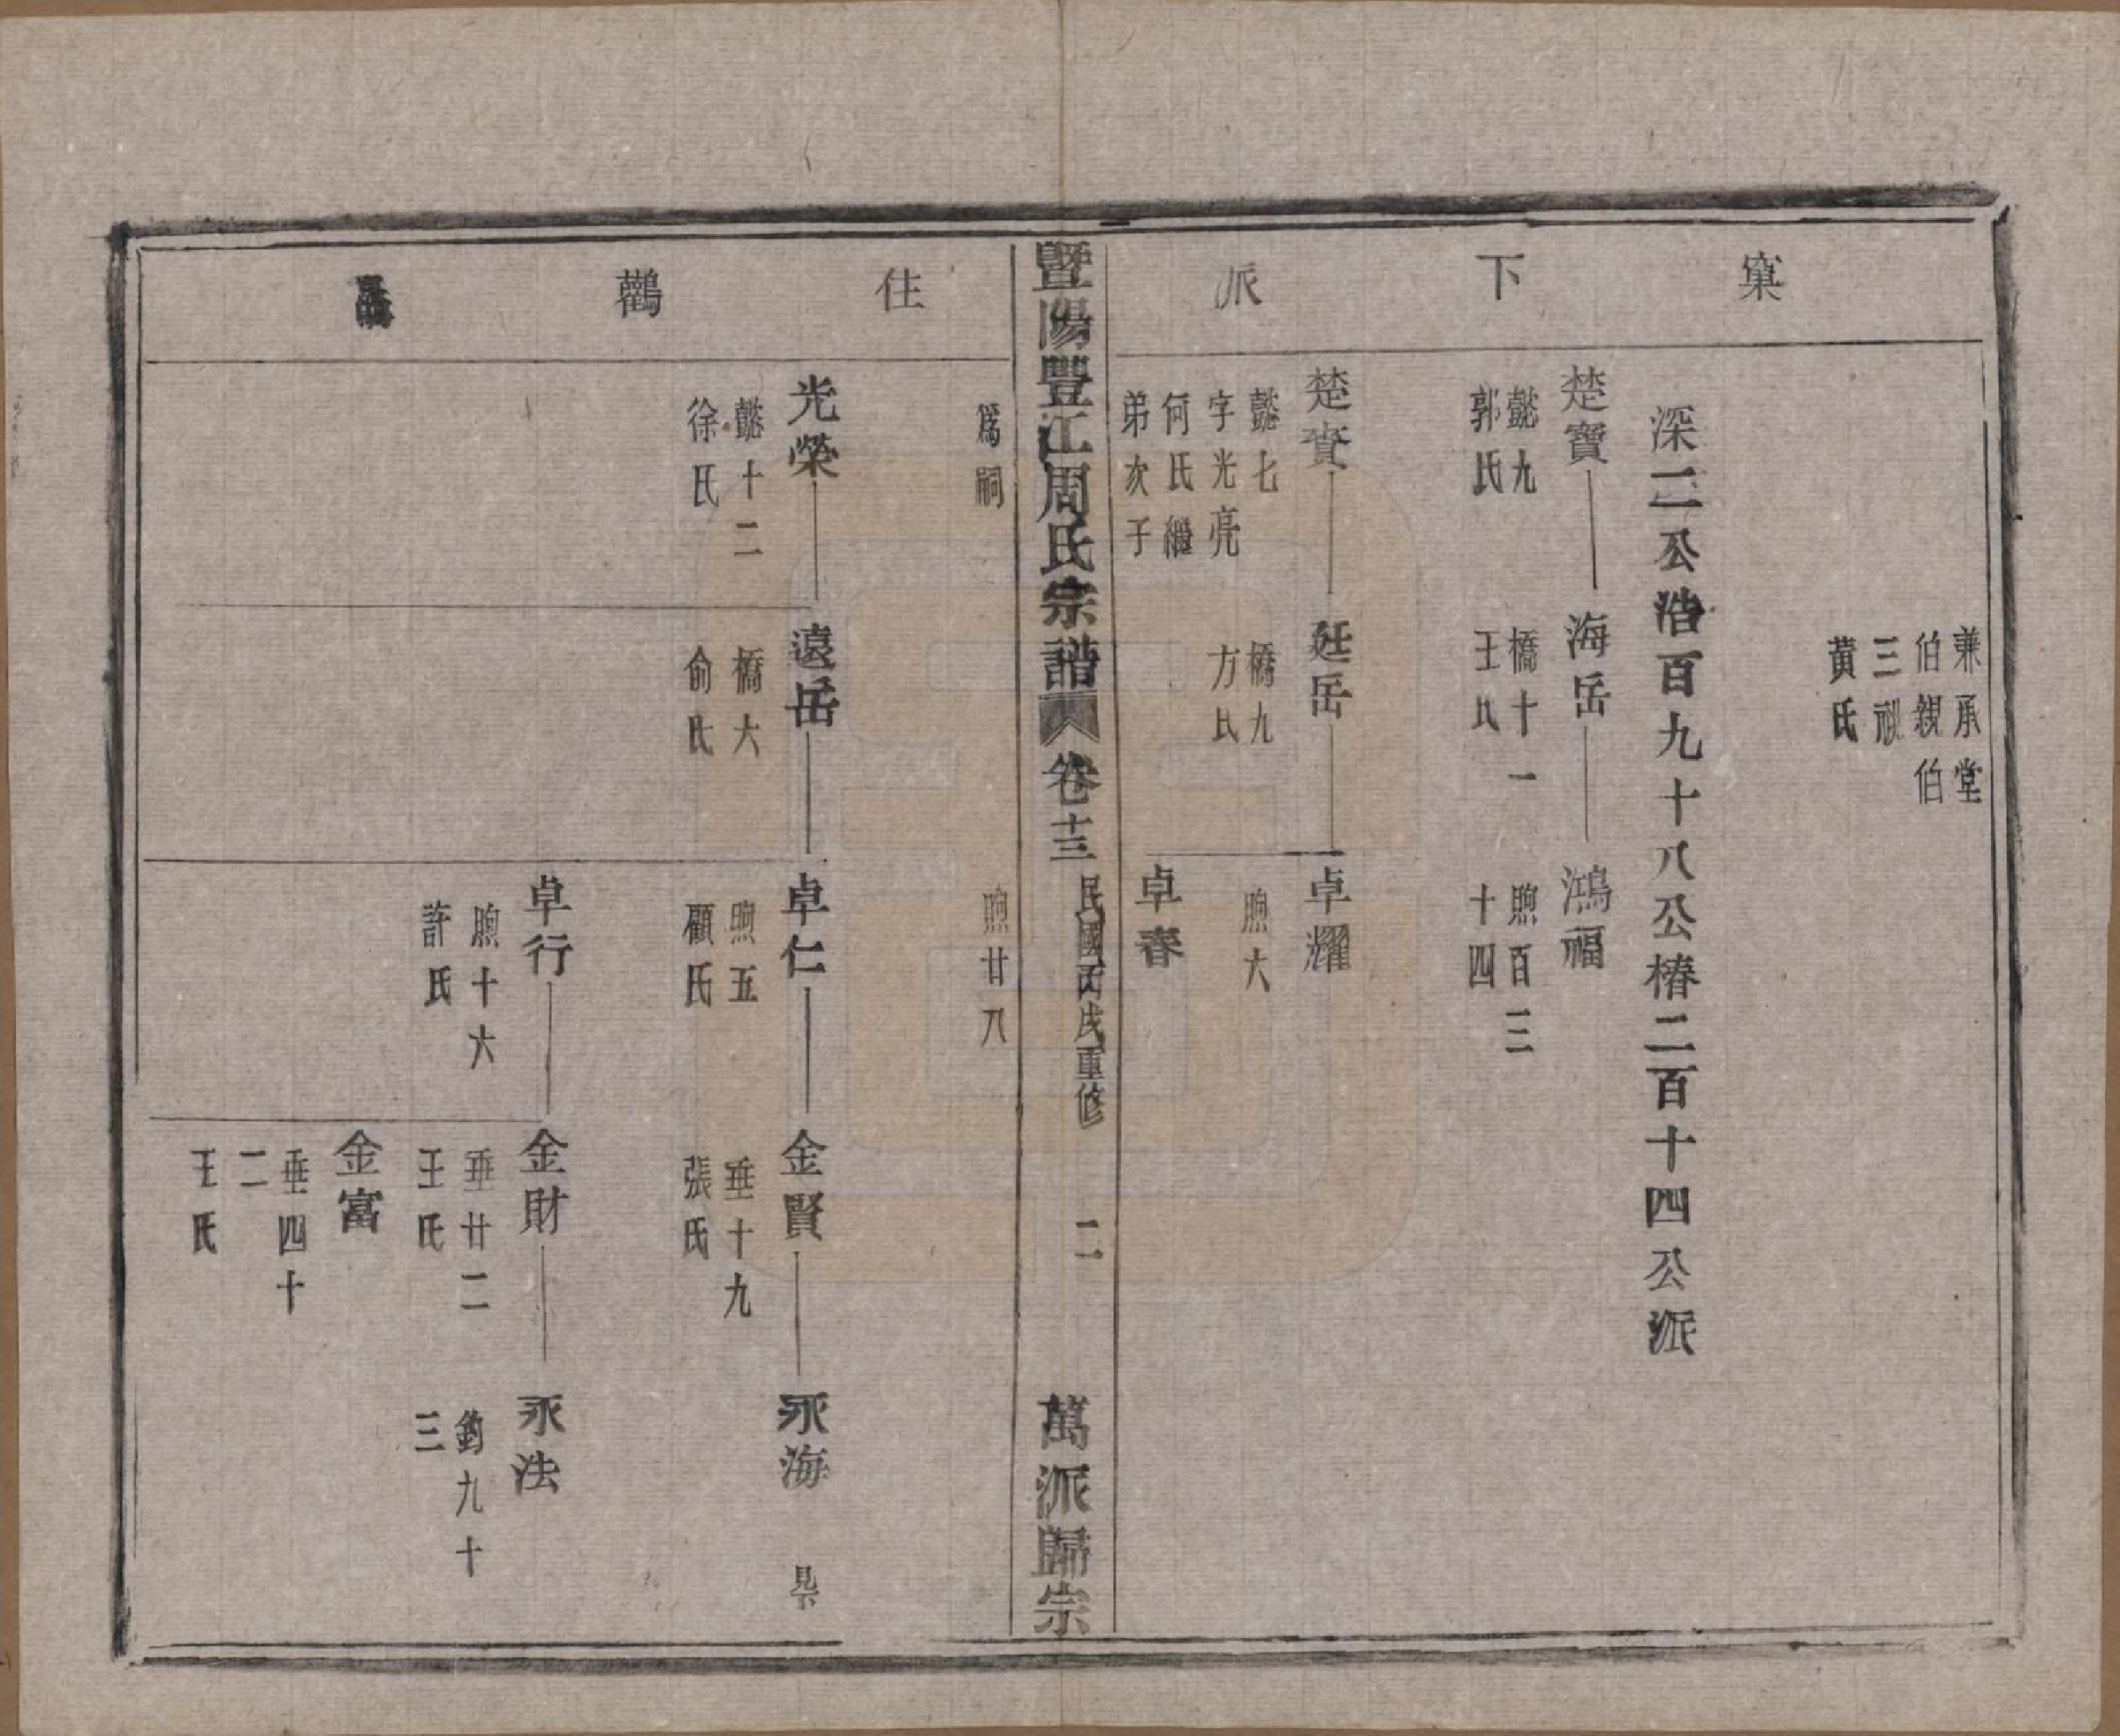 窠下派
兼承堂
伯親伯
三祝
黄氏
深二公浩百九十八公椿二百十四公派
楚寶
懿九
郭氏
海岳
橋十一
王氏
鴻福
煦百三
十四
楚賫
懿七
字光亮
何氏繼
弟次子
廷岳
橋九
方氏
卓耀
煦大
卓春
暨陽豐江周氏宗譜
卷十三
民國丙戌重修
二
萬派歸宗
住鸛
爲嗣
煦廿八
光榮
懿十二
徐氏
遠岳
橋六
俞氏
卓仁
煦五
顧氏
金賢
垂十九
張氏
永海
卓行
煦十六
許氏
金財
垂廿二
王氏
永法
鈞九十
三
金富
垂四十
二
王氏